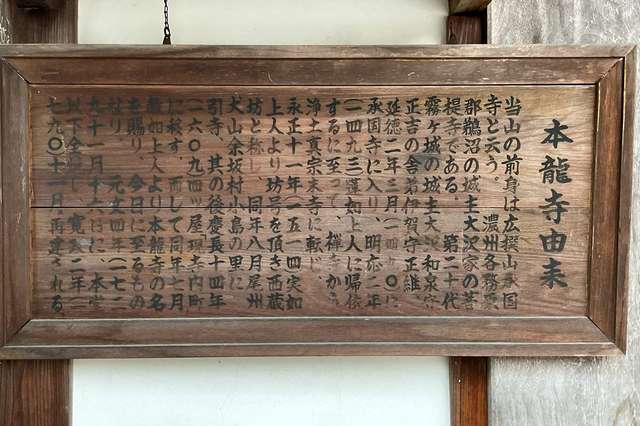 本龍寺由来
当山の前身は広撰山承国
寺と云う。濃州各務原
郡鵜沼の城主大沢家の菩
提寺である。第二十代
霧ヶ城の城主大沢和泉守
正吉の舎弟伊賀守正維、
延徳二年三月(一四九〇)に
承国寺に入り、明応二年
(一四九三)蓮如上人に帰依
するに至って、禅寺から
浄土真宗末寺に転じ
永正十一年(一五一四)実如
上人より坊号を頂き西蔵
坊と称し、同年八月尾州
犬山余坂村小島の里に
引寺、其の後慶長十四年
(一六〇九)四ツ屋現寺内町
に移す。而して同年七月
教如上人より本龍寺の名
を賜り、今日に至るもの
なり 元文四年(一七
九十一月十六日に、本堂
以下全焼し、寛政二年(一
七九〇)十一月、再建される